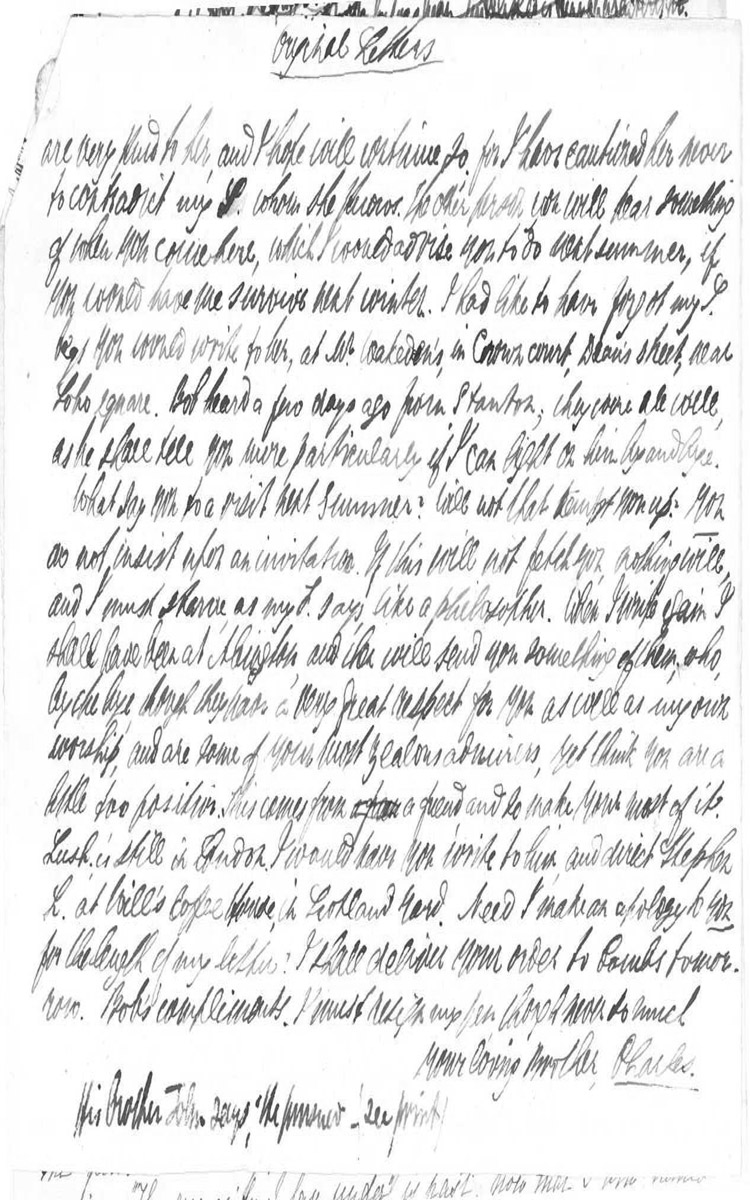 Original Letters
are very kind to her, and I hope will continue so, for I have cautioned her never
to contradict my L. whom she knows. The other person you will hear something
of when you come here, which I would advise you to do next summer, if
you would have me survive next winter. I had like to have forgot my L.
begs you would write to her, at Mr. in Crown court, Dean's street, near
Soho square. Bob heard a few days ago from Stanton; they were all well,
as he shall tell you more particularly if I can light on him by and bye.
What say you to a visit next Summer? Will not that tempt you up? You
do not insist upon an invitation. If this will not fetch you, nothing will,
and I must starve as my L. says like a philosopher. When I write again I
shall have been at and then will send you something of them, who,
by the bye though they have a very great respect for you as well as my own
worship, and are some of your most zealous admirers, yet think you are a
little too positive. This comes from a friend and so make your most of it.
Lush. is still in London. I would have you write to him, and direct Stephen
L. at Will's Coffee House, in Scotland Yard. Need I make an apology to you
for the length of my letter? I shall deliver your order to Combs tomor-
row. Bob's compliments. I must resign my pen though never so much
Your loving Brother, Charles.
His Brother John says, "He pursued - (see print)